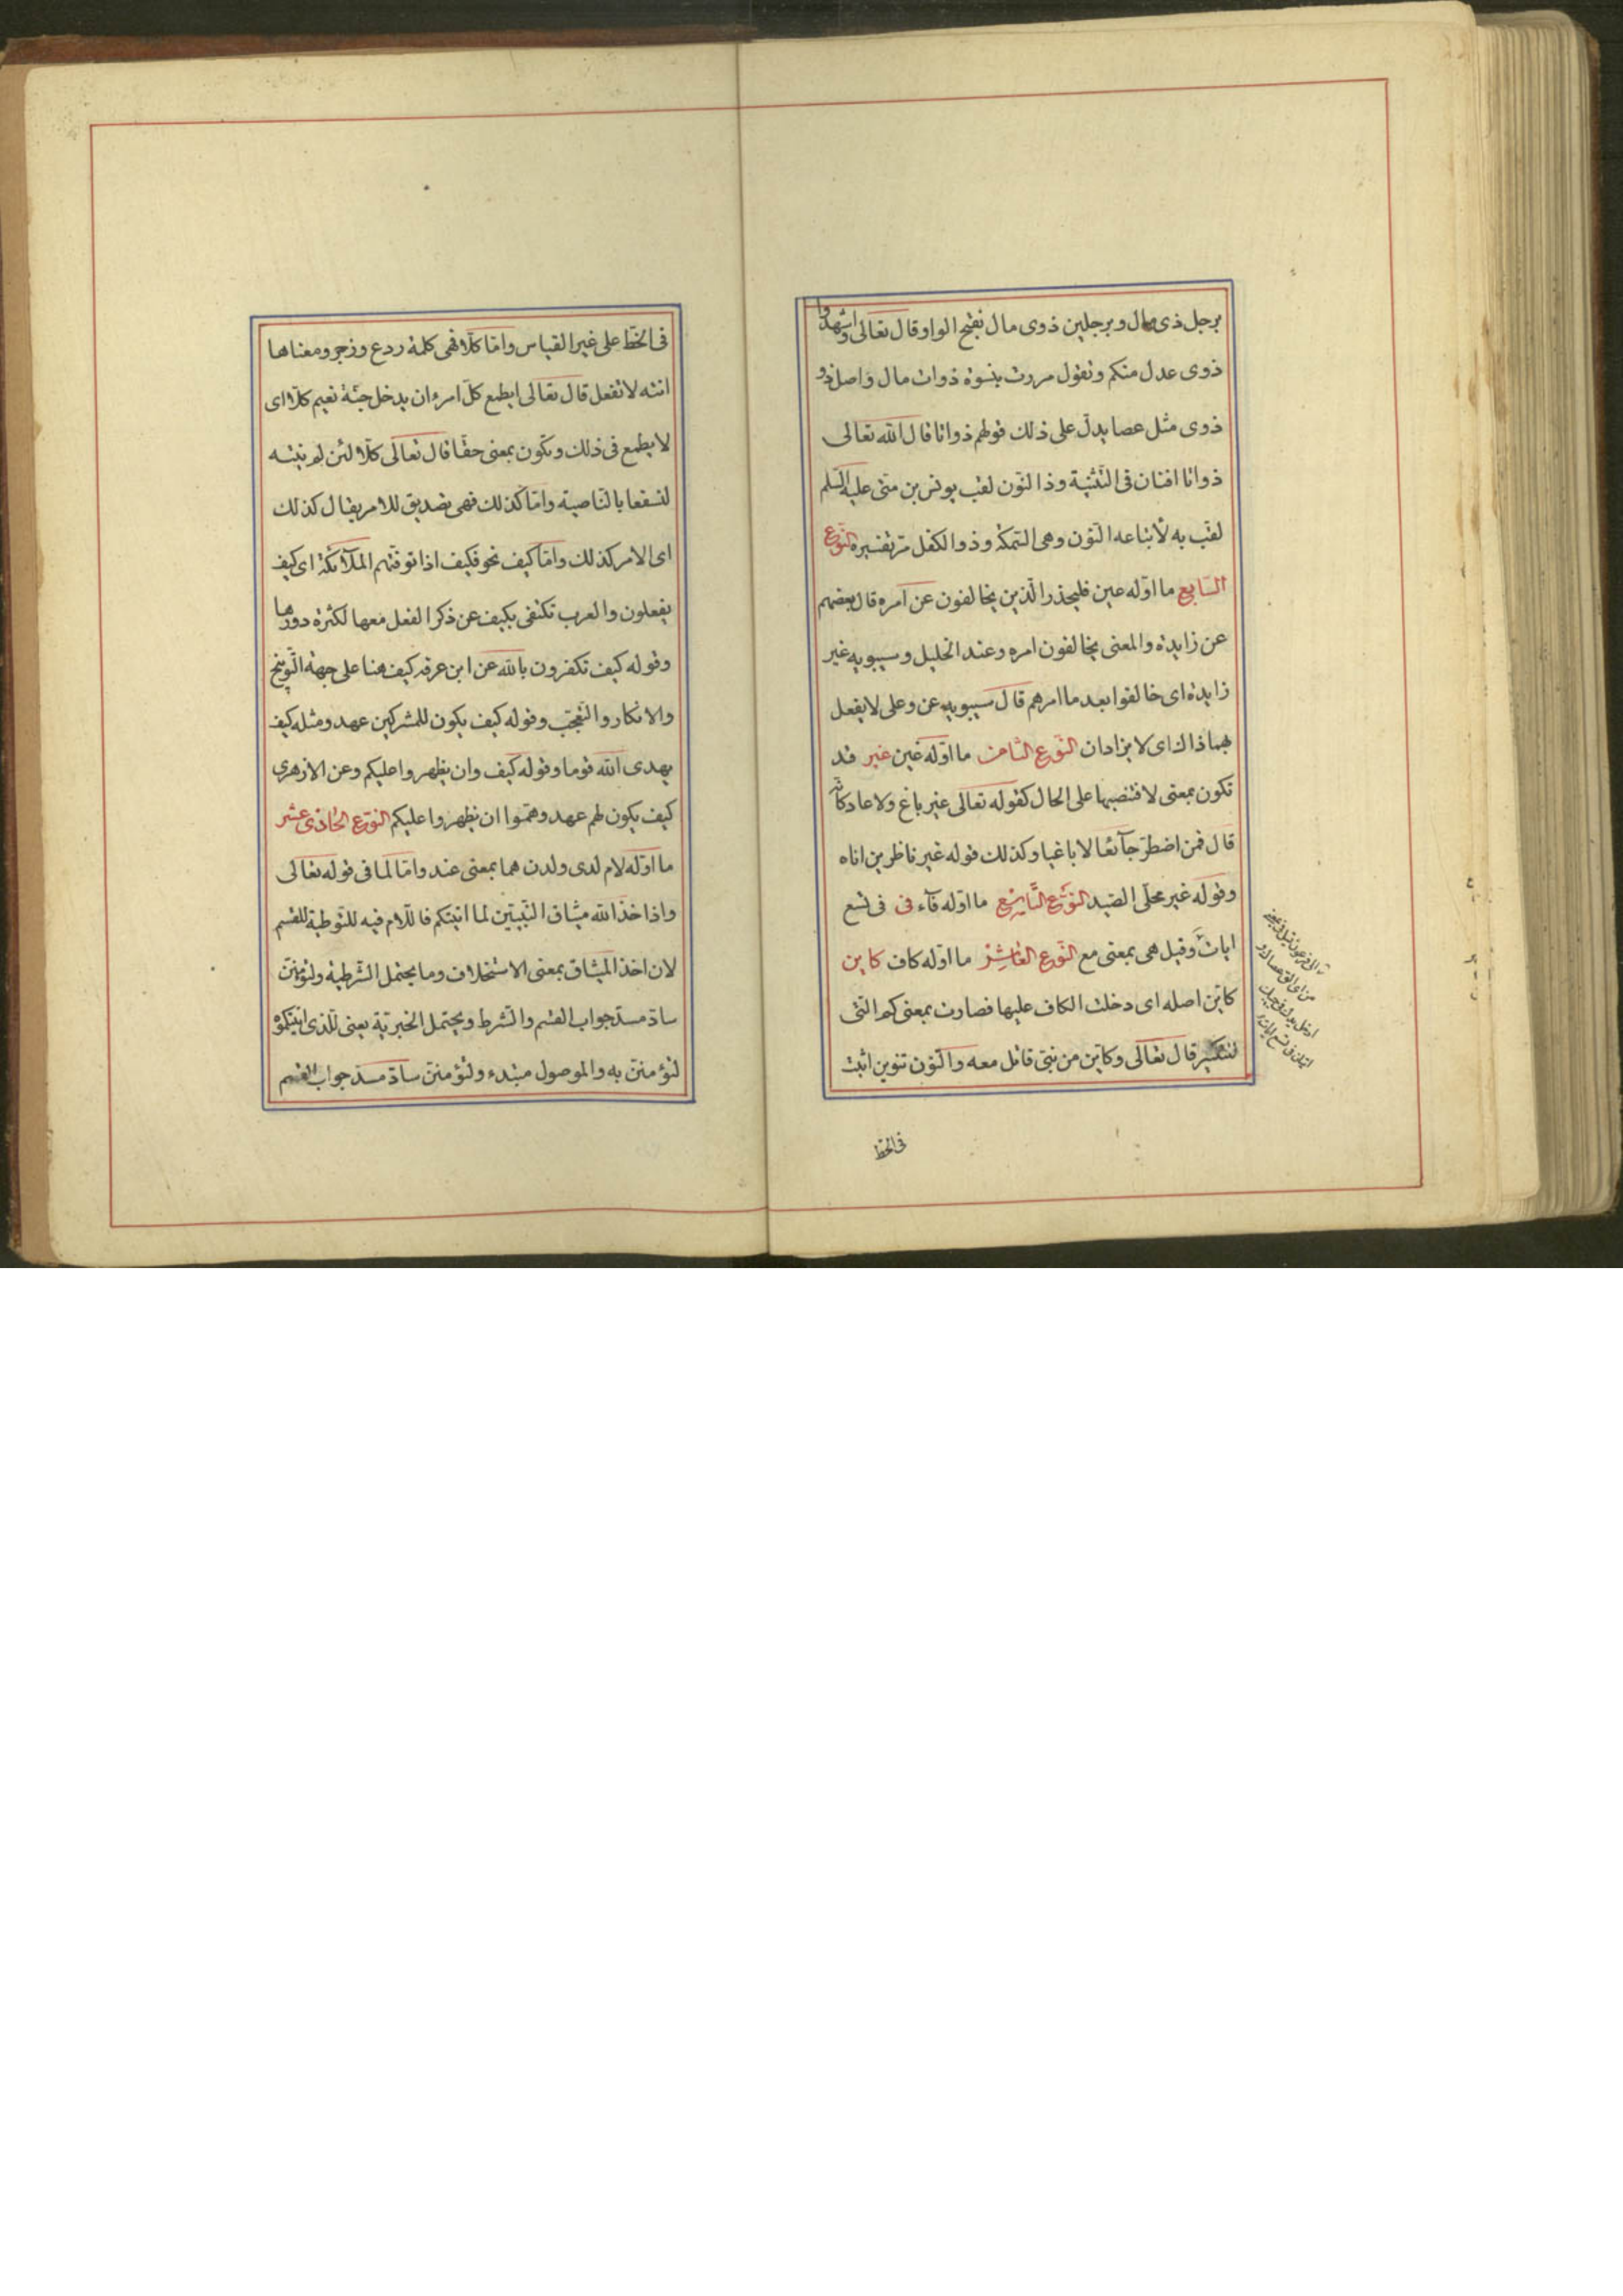 برجل ذى مال و برجلين ذوى مال بفتح الواو وقال تعالى واشهدوا
ذوى عدل منكم وتقول مررت بنسوة ذوات مال واصل ذو
ذوى مثل عصا يدل على ذلك قولهم ذواتا قال الله تعالى
ذواتا افنان فى التثنية وذا النون لقب يونس بن متى عليه السلم
لقب به لابتاعه النون وهى السمكة وذوا الكفل مر تفسيره النوع
السابع ما اوله عين فليحذر الذين يخالفون عن امره قال بعضهم
عن زايدة والمعنى يخالفون امره وعند الخليل وسيبويه غير
زايدة اى خالفوا بعد ما امرهم قال سيبويه عن وعلى لا يفعل
بهما ذاك اى لا يزادان النوع الثامن ما اوله غين غير قد
تكون بمعنى لا فتنصبها على الحال كقوله تعالى غير باغ ولا عاد كانه
قال فمن اضطر جآئعا لا باغيا وكذلك قوله غير ناظرين اناه
وقوله غير محلى الصيد النوع التاسع ما اوله فآء فى فى تسع
ايات وقيل هى بمعنى مع النوع العاشر ما اوله كاف كاين
كاين اصله اى دخلت الكاف عليها فصارت بمعنى كم التى
للتكثير قال تعالى وكاين من نبى قاتل معه والنون تنوين اثبت
فى الخط
فى الخط على غير القياس واما كلا فهى كلمة ردع وزجر ومعناها
انته لا تفعل قال تعالى ايطمع كل امرء ان يدخل جنة نعيم كلا اى
لا يطمع فى ذلك وتكون بمعنى حقا قال تعالى كلا لئن لم ينته
لنسفعا بالناصية واما كذلك فهى تصديق للامر يقال كذلك
اى الامر كذلك واما كيف نحو فكيف اذا توفتهم الملآئكة اى كيف
يفعلون والعرب تكتفى بكيف عن ذكر الفعل معها لكثرة دورها
وقوله كيف تكفرون بالله عن ابن عرفه كيف هنا على جهة التوبيخ
والانكار والتعجب وقوله كيف يكون للمشركين عهد ومثله كيف
يهدى الله قوما وقوله كيف وان يظهروا عليكم وعن الازهرى
كيف يكون لهم عهد وهموا ان يظهروا عليكم النوع الحادى عشر
ما اوله لام لدى ولدن هما بمعنى عند واما لما فى قوله تعالى
واذ اخذ الله ميثاق النبيين لما اتيتكم فاللام فيه للتوطية للقسم
لان اخذ الميثاق بمعنى الاستحلاف وما يحتمل الشرطية ولتؤمنن
ساد مسد جواب القسم والشرط ويحتمل الخبرية يعنى للذى اتيتكموه
لتؤمنن به والموصول مبتدء ولتؤمنن ساد مسد جواب القسم